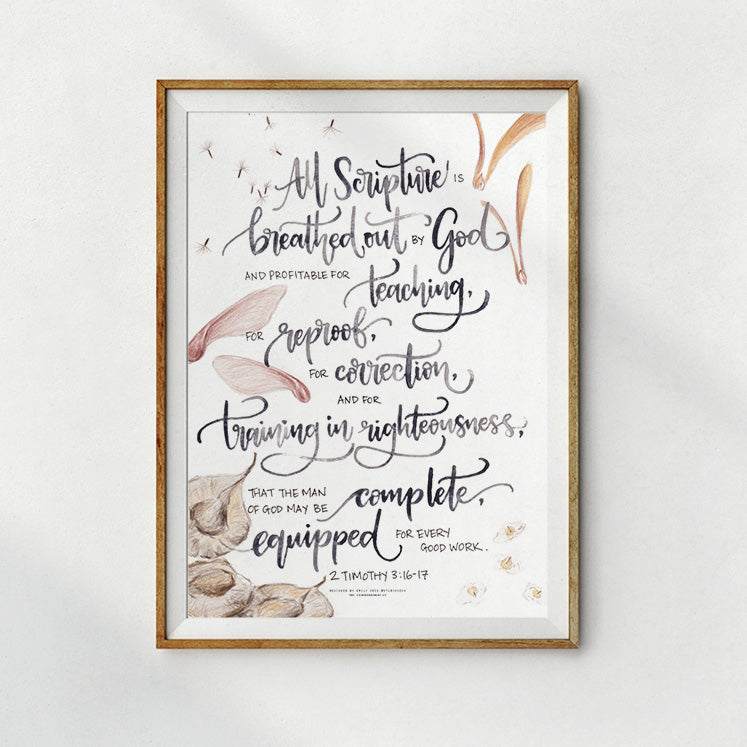 All Scripture IS
breathed out BY God
AND PROFITABLE FOR
teaching,
FOR reproof,
FOR correction,
AND FOR
training in righteousness,
THAT THE MAN
OF GOD MAY BE
complete,
equipped
FOR EVERY
GOOD WORK.
2 TIMOTHY 3:16-17
DESIGNED BY EMILY